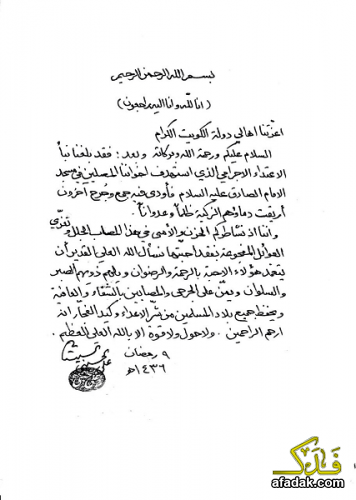 بسم الله الرحمن الرحيم
(انا لله وانا اليه راجعون)
اعزتنا اهالي دولة الكويت الكرام
السلام عليكم ورحمة الله وبركاته وبعد: فقد بلغنا نبأ
الاعتداء الاجرامي الذي استهدف اخواننا المصلين في مسجد
الامام الصادق عليه السلام فأودى منه جمع وجُرح آخرون
أريقت دماؤهم الزكية ظلماً وعدواناً.
واننا اذ نشاطركم الحزن والأسى في هذا المصاب الجلل ونعزّي
العوائل المفجوعة بفقد احبتها نسأل الله العلي القدير أن
يتغمد هؤلاء الاحبة بالرحمة والرضوان ويلهم ذويهم الصبر
والسلوان ويمنّ على الجرحى والمصابين بالشفاء والعافية
ويحفظ جميع بلاد المسلمين من شرّ الاعداء وكيد الفجار انه
ارحم الراحمين. ولا حول ولا قوة الا بالله العلي العظيم.
٩ رمضان
١٤٣٦هـ
علي الحسيني السيستاني
فدك
afadak.com